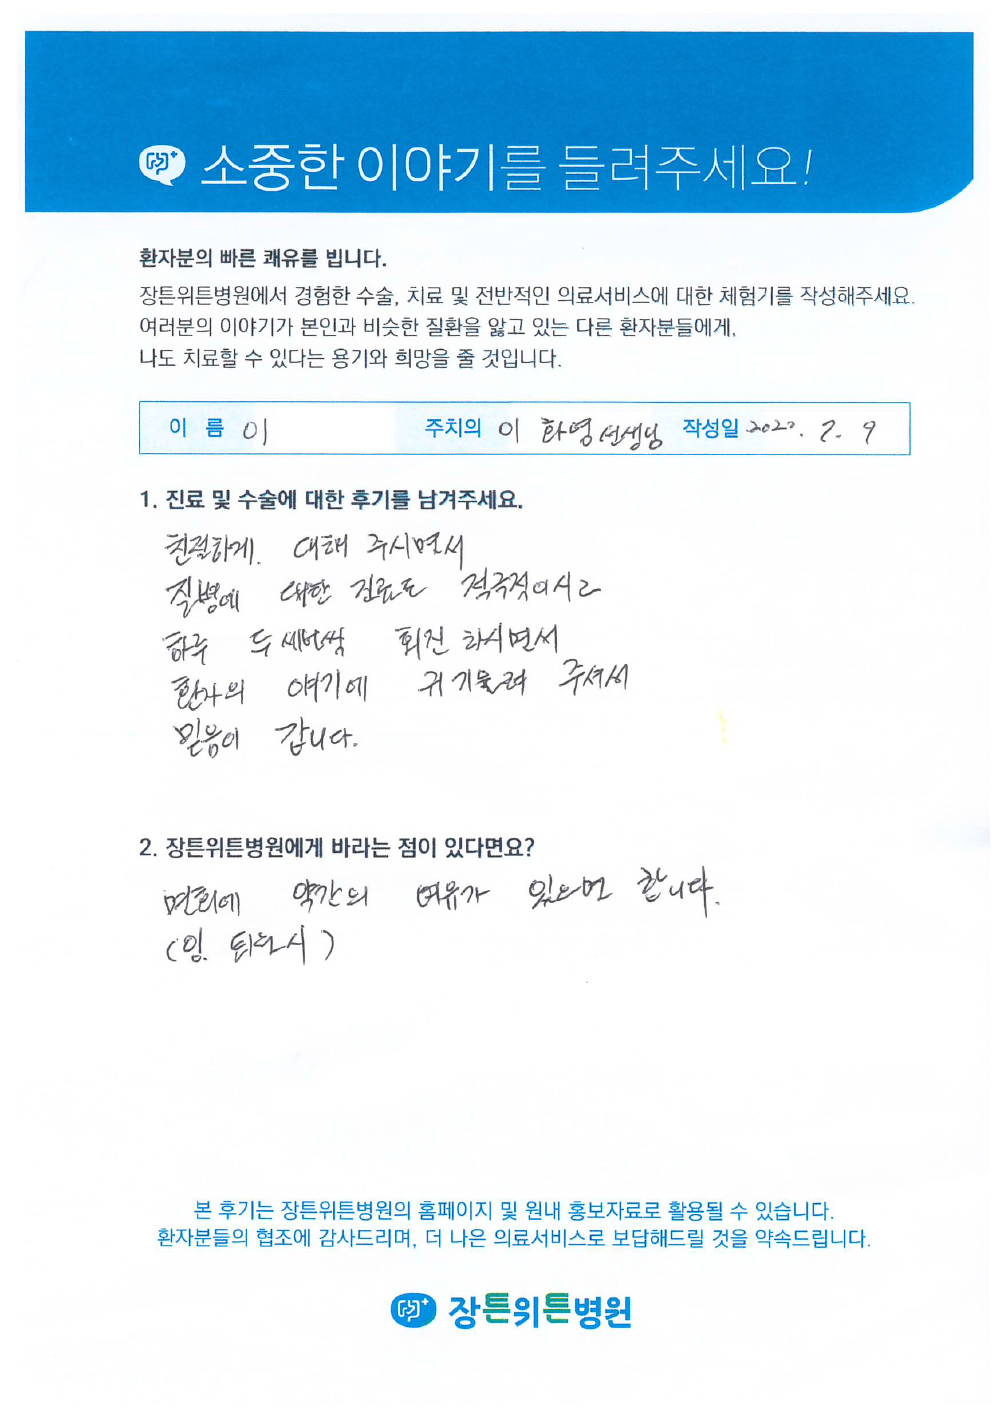 소중한 이야기를 들려주세요!
환자분의 빠른 쾌유를 빕니다.
장튼위튼병원에서 경험한 수술, 치료 및 전반적인 의료서비스에 대한 체험기를 작성해주세요.
여러분의 이야기가 본인과 비슷한 질환을 앓고 있는 다른 환자분들에게,
나도 치료할 수 있다는 용기와 희망을 줄 것입니다.
이 름 이 주치의 이 화영 선생님 작성일 7. 9
1. 진료 및 수술에 대한 후기를 남겨주세요.
친절하게. 대해 주시면서
질병에 대한 진료도 적극적이시고
하루 두세번씩 회진 하시면서
환자의 얘기에 귀 기울려 주셔서
믿음이 갑니다.
2. 장튼위튼병원에게 바라는 점이 있다면요?
면회에 약간의 여유가 있으면 합니다.
(입. 퇴원시)
본 후기는 장튼위튼병원의 홈페이지 및 원내 홍보자료로 활용될 수 있습니다.
환자분들의 협조에 감사드리며, 더 나은 의료서비스로 보답해드릴 것을 약속드립니다.
장튼위튼병원